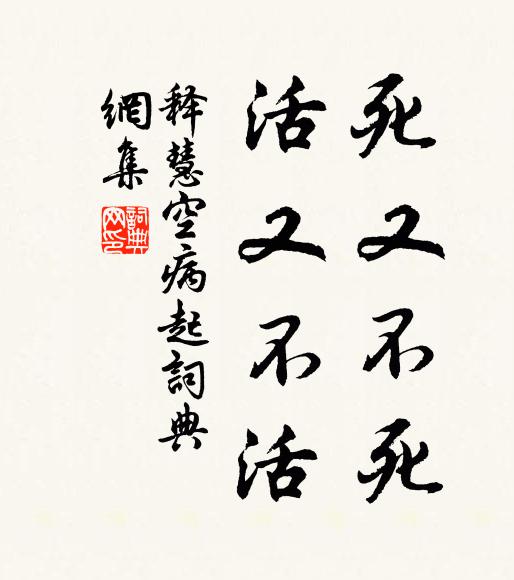 死又不死
活又不活
释慧空病起詞典
網集
詞典网印